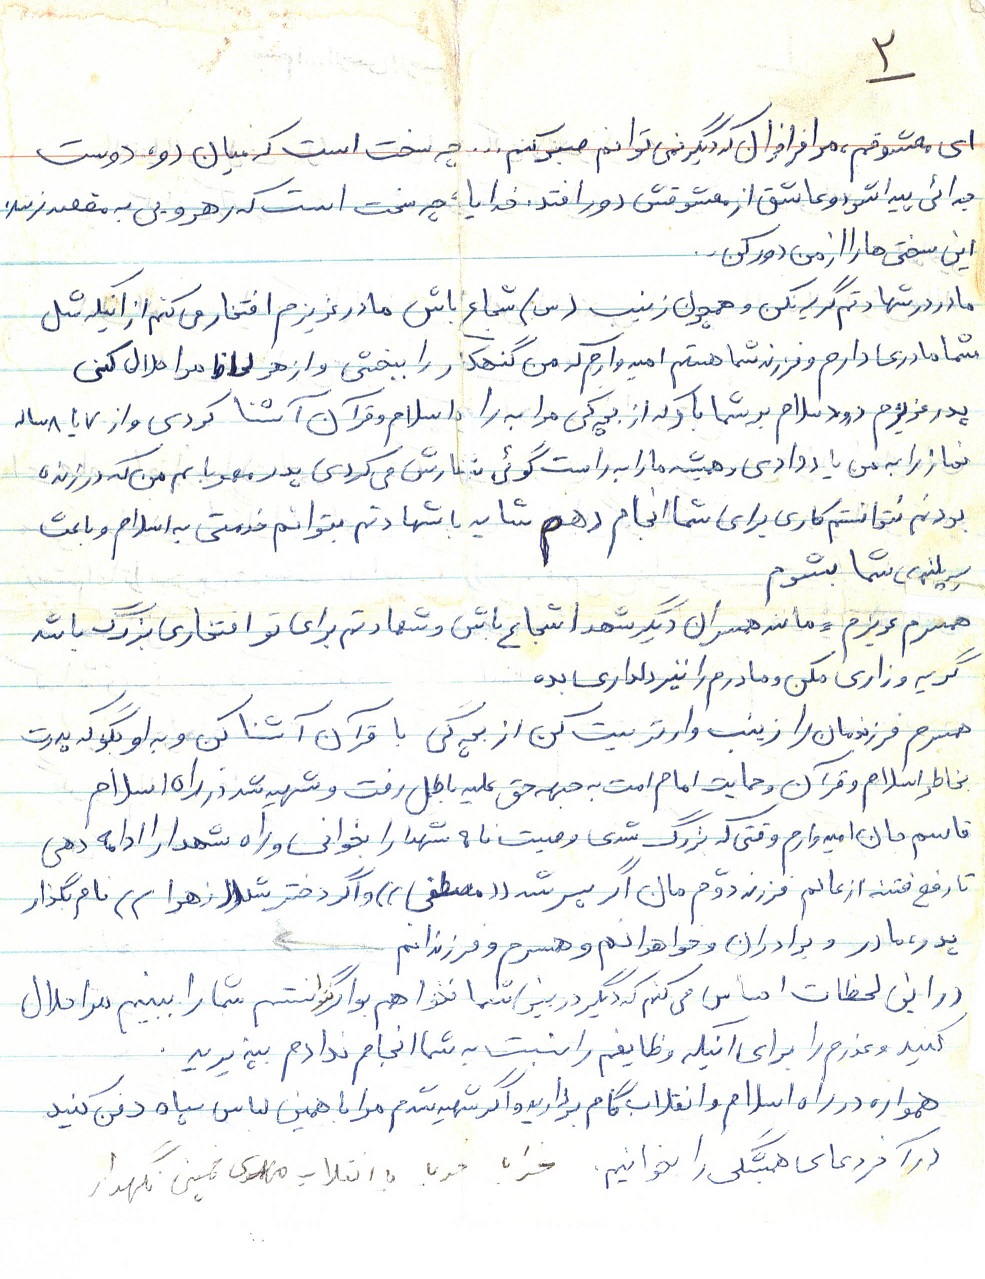 ۲
ای معشوقم، مرا فراخوان که دیگر نمی توانم صبر کنم ... چه سخت است که میان دو، دوست
جدائی پیدا شود و عاشق از معشوقش دور افتد. خدایا، چه سخت است که رهرویی به مقصد نرسد،
این سختی ها را از من دور کن.
مادر در شهادتم گریه نکن و همچون زینب (س) شجاع باش مادر عزیزم افتخار می کنم از اینکه مثل
شما مادری دارم و فرزند شما هستم امیدوارم که من گنهکار را ببخشی و از هر لحاظ مرا حلال کنی
پدر عزیزم درود و سلام بر شما باد که از بچگی مرا به را اسلام و قرآن آشنا کردی و از ۷ یا ۸ ساله
نماز را به من یاد دادی و همیشه ما را به راست گوئی سفارش می کردی پدر مهربانم من که در زنده
بودنم نتوانستم کاری برای شما انجام دهم شاید با شهادتم بتوانم خدمتی به اسلام و باعث
سربلندی شما بشوم
همسرم عزیزم مانند همسران دیگر شهدا شجاع باش و شهادتم برای تو افتخاری بزرگ باشد
گریه و زاری مکن و مادرم را نیز دلداری بده
همسرم فرزندمان را زینب وار تربیت کن از بچگی با قرآن آشنا کن و به او بگو که پدرت
بخاطر اسلام و قرآن و حمایت امام امت به جبهه حق علیه باطل رفت و شهید شد در راه اسلام
قاسم جان امیدوارم وقتی که بزرگ شدی وصیت نامه شهدا را بخوانی و راه شهدا را ادامه دهی
تا رفع فتنه از عالم فرزند دوم مان اگر پسر شد ((مصطفی)) و اگر دختر شد ((زهرا)) نام بگذار
پدر، مادر و برادران و خواهرانم و همسرم و فرزندانم
در این لحظات احساس می کنم که دیگر در بین شما نخواهم بود اگر نتوانستم شما را ببینم مرا حلال
کنید و عذرم را برای اینکه وظایفم را نسبت به شما انجام ندادم بپذیرید.
همواره در راه اسلام و انقلاب گام بردارید و اگر شهید شدم مرا با همین لباس سپاه دفن کنید
در آخر دعای همیشگی را بخوانیم. خدایا خدایا تا انقلاب مهدی خمینی نگهدار